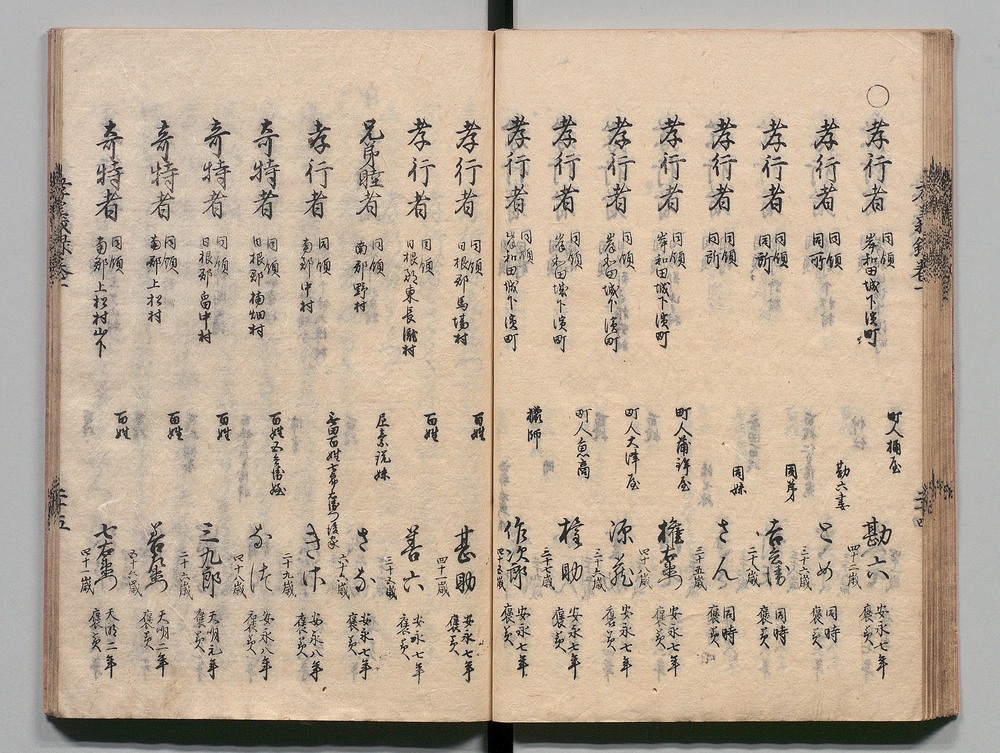 ○
孝行者 同領 岸和田城下濱町 町人桶屋 勘六 四十二歳 安永七年 褒美
孝行者 同領 同所 勘六妻 とめ 三十六歳 同時 褒美
孝行者 同領 同所 同弟 吉兵衛 二十八歳 同時 褒美
孝行者 同領 同所 同妹 さん 二十五歳 同時 褒美
孝行者 同領 岸和田城下濱町 町人蒲詳屋 権右衛門 四十八歳 安永七年 褒美
孝行者 同領 岸和田城下濱町 町人大津屋 源蔵 三十六歳 安永七年 褒美
孝行者 同領 岸和田城下濱町 町人魚商 権助 三十七歳 安永七年 褒美
孝行者 同領 岸和田城下濱町 獵師 作次郎 四十五歳 安永七年 褒美
孝行者 同領 日根郡馬場村 百姓 甚助 四十一歳 安永七年 褒美
孝行者 同領 日根郡東長瀧村 百姓 善六 三十五歳 安永七年 褒美
兄弟睦者 同領 南郡野村 妹 さな 六十八歳 安永七年 褒美
孝行者 同領 南郡中村 無田百姓 後家 きく 二十九歳 安永八年 褒美
奇特者 同領 日根郡楠畑村 百姓 なつ 四十八歳 安永八年 褒美
奇特者 同領 日根郡畠中村 百姓 三九郎 二十六歳 天明元年 褒美
奇特者 同領 南郡上松村 百姓 五十六歳 天明二年 褒美
奇特者 同領 南郡上松村山下 百姓 七右衛門 四十一歳 天明二年 褒美